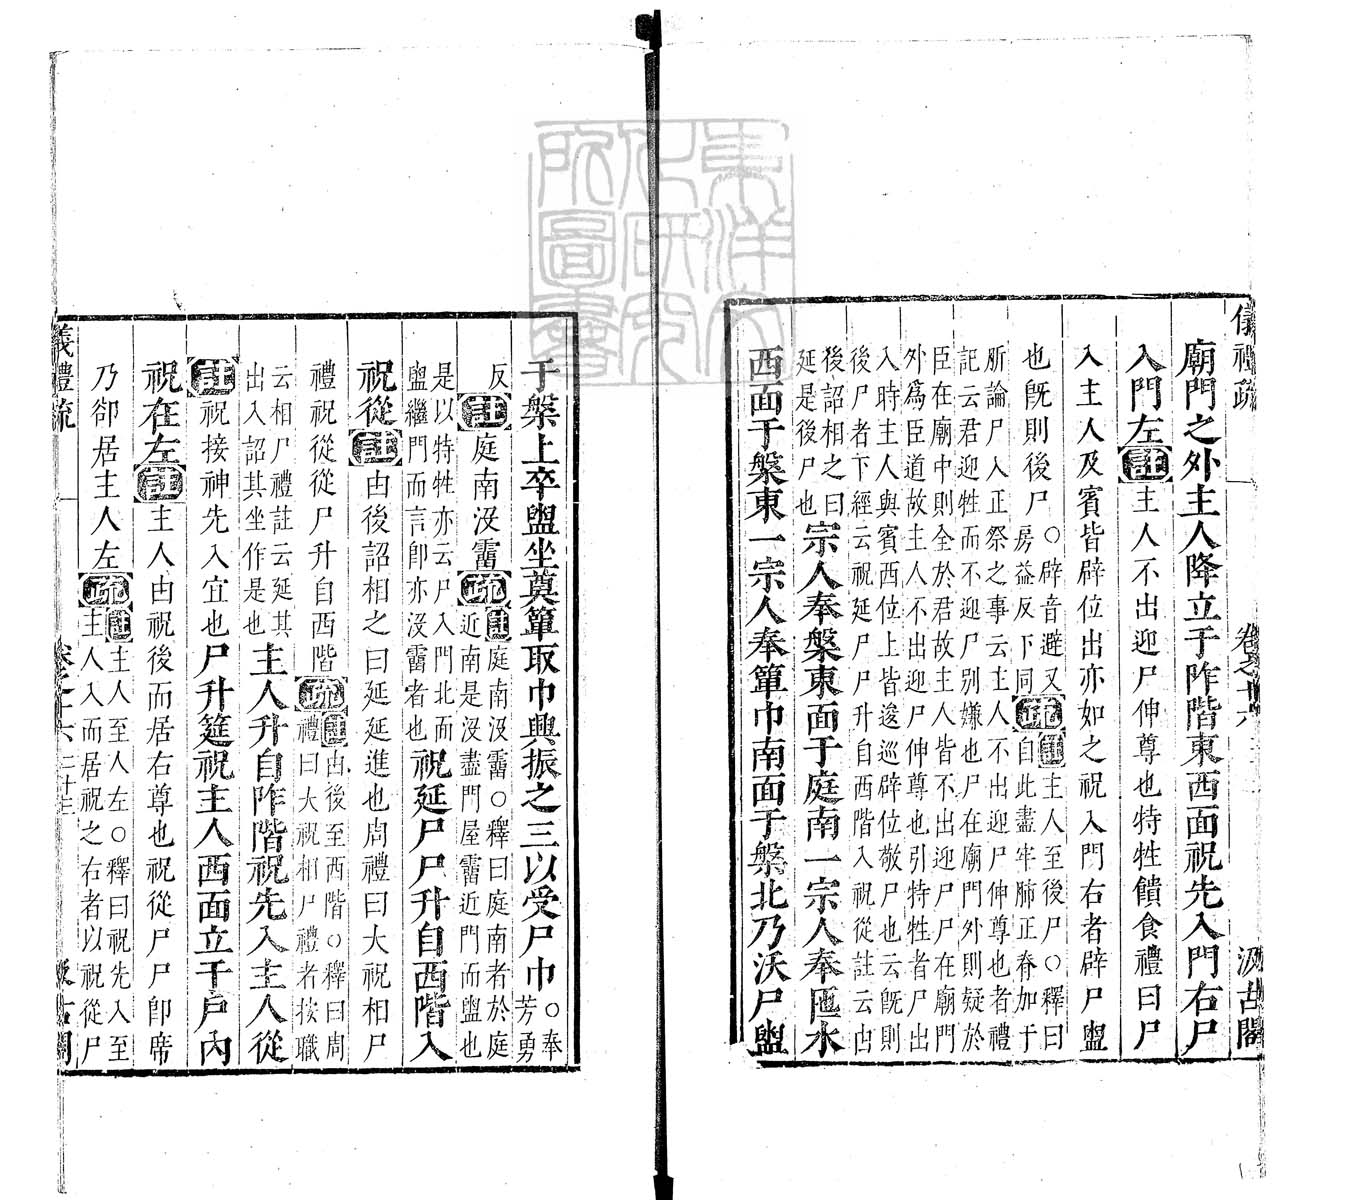 儀禮疏 卷之十六 汲古閣
廟門之外主人降立于阼階東西面祝先入門右尸
入門左註主人不出迎尸伸尊也特牲饋食禮曰尸
入主人及賓皆辟位出亦如之祝入門右者辟尸盥
也旣則後尸○辟音避又
房益反下同
疏註主人至後尸○釋曰
自此盡牢肺正脊加于
所論尸入正祭之事云主人不出迎尸伸尊也者禮
記云君迎牲而不迎尸別嫌也尸在廟門外則疑於
臣在廟中則全於君故主人皆不出迎尸尸在廟門
外爲臣道故主人不出迎尸伸尊也引特牲者尸出
入時主人與賓西位上皆逡巡辟位敬尸也云旣則
後尸者下經云祝延尸尸升自西階入祝從註云由
後詔相之曰
延是後尸也
宗人奉槃東面于庭南一宗人奉匜水
西面于槃東一宗人奉簞巾南面于槃北乃沃尸盥
于槃上卒盥坐奠簞取巾興振之三以受尸巾○奉
芳勇
反註庭南沒霤疏註庭南沒霤○釋曰庭南者於庭
近南是沒盡門屋霤近門而盥也
是以特牲亦云尸入門北面
盥繼門而言卽亦沒霤者也
祝延尸尸升自西階入
祝從註由後詔相之曰延延進也周禮曰大祝相尸
禮祝從從尸升自西階疏註由後至西階○釋曰周
禮曰大祝相尸禮者按職
云相尸禮註云延其
出入詔其坐作是也
主人升自阼階祝先入主人從
註祝接神先入宜也尸升筵祝主人西面立于戶內
祝在左註主人由祝後而居右尊也祝從尸尸卽席
乃卻居主人左疏註主人至人左○釋曰祝先入至
主人入而居祝之右者以祝從尸
儀禮疏 卷之十六 二十三 汲古閣
東洋文化研究所圖書